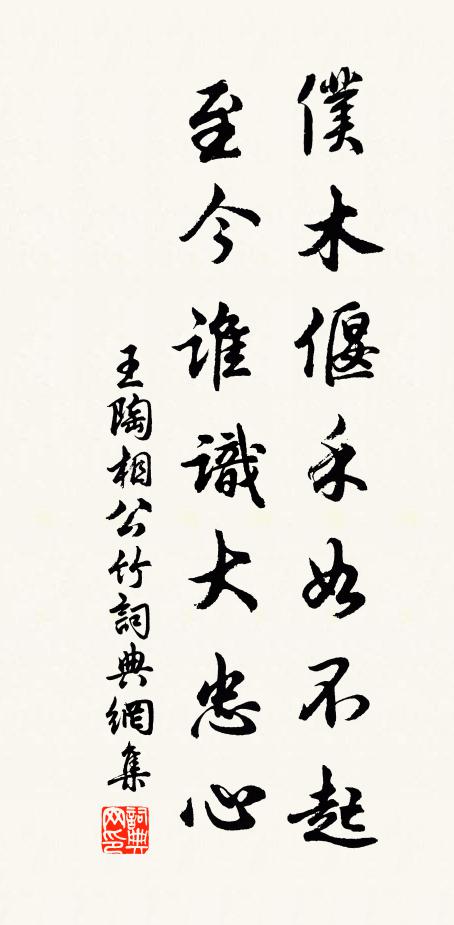 僕木偃禾如不起
至今誰識大忠心
王陶相公竹詞典網集
詞典网印